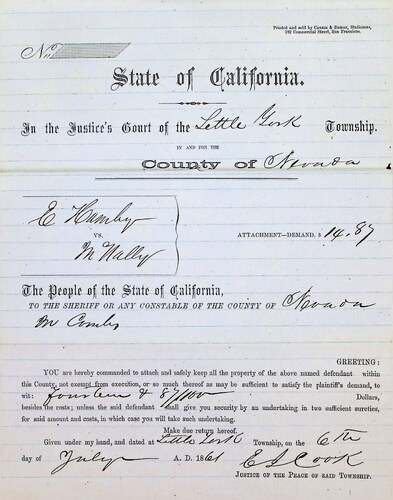 Printed and sold by
Stationers,
Commercial Street, San Francisco.
No.
State of California.
In the Justice's Court of the Little York Township.
IN AND FOR THE
County of Nevada
E Hamby
VS.
McNally
ATTACHMENT—DEMAND. $ 14.87
The People of the State of California,
TO THE SHERIFF OR ANY CONSTABLE OF THE COUNTY OF Nevada
McCombs
GREETING:
YOU are hereby commanded to attach and safely keep all the property of the above named defendant within
this County, not exempt from execution, or so much thereof as may be sufficient to satisfy the plaintiff's demand, to
wit: fourteen & 87/100 Dollars,
besides the costs; unless the said defendant shall give you security by an undertaking in two sufficient sureties,
for said amount and costs, in which case you will take such undertaking.
Make due return hereof.
Given under my hand, and dated at Little York Township, on the 6th
day of July A. D. 1861 E S Cook
JUSTICE OF THE PEACE OF SAID TOWNSHIP.